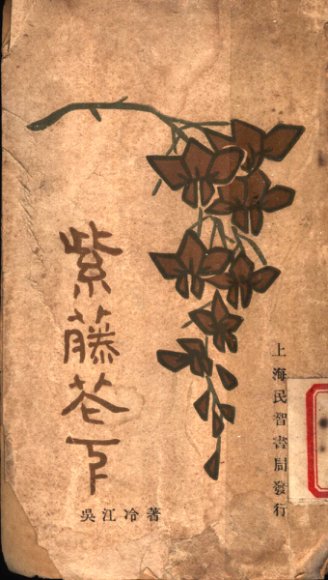 紫藤花下
吳江冷著
上海民智書局發行